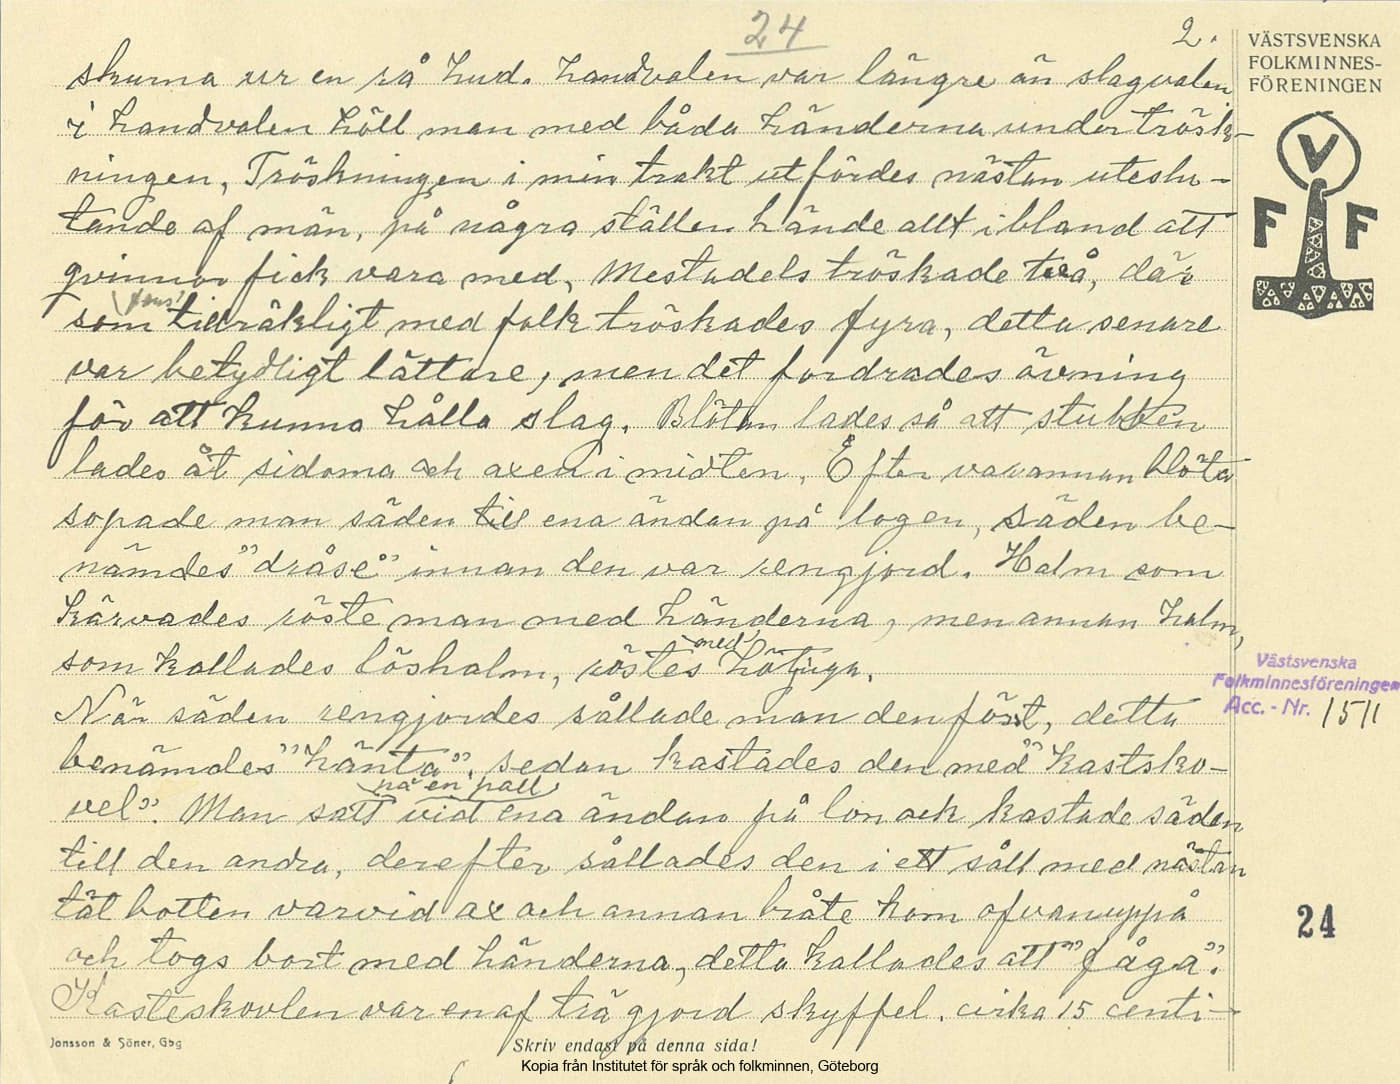 24
2.
VÄSTSVENSKA
FOLKMINNES-
FÖRENINGEN
V
F F
skurna ur en rå hud. handvalen var längre än slagvalen
i handvalen höll man med båda händerna under trösk-
ningen, Tröskningen i min trakt utfördes nästan uteslu-
tande af män, på några ställen hände allt ibland att
qvinnor fick vara med, Mestadels tröskade två, där
som fans tillräkligt med folk tröskades fyra, detta senare
var betydligt lättare, men det fordrades övning
för att kunna hålla slag. Blötan lades så att stubben
lades åt sidorna och axen i midten. Efter varannan blöta
sopade man säden till ena ändan på logen, säden be-
nämdes "dråse" innan den var rengjord. Halm som
kärvades röste man med händerna, men annan halm,
som kallades löshalm, röstes med hötjuga.
När säden rengjordes sållade man den först, detta
benämdes "hänta", sedan kastades den med "kastsko-
vel". Man satt på en pall vid ena ändan på lon och kastade säden
till den andra, derefter sållades den i ett såll med nästan
tät botten varvid ax och annan bråte kom ofvanuppå
och togs bort med händerna, detta kallades att "fåga".
Kasteskovlen var en af trä gjord skyffel, cirka 15 centi-
Västsvenska
Folkminnesföreningen
Acc. - Nr. 1511
24
Jonsson & Söner, Gbg
Skriv endast på denna sida!
Kopia från Institutet för språk och folkminnen, Göteborg